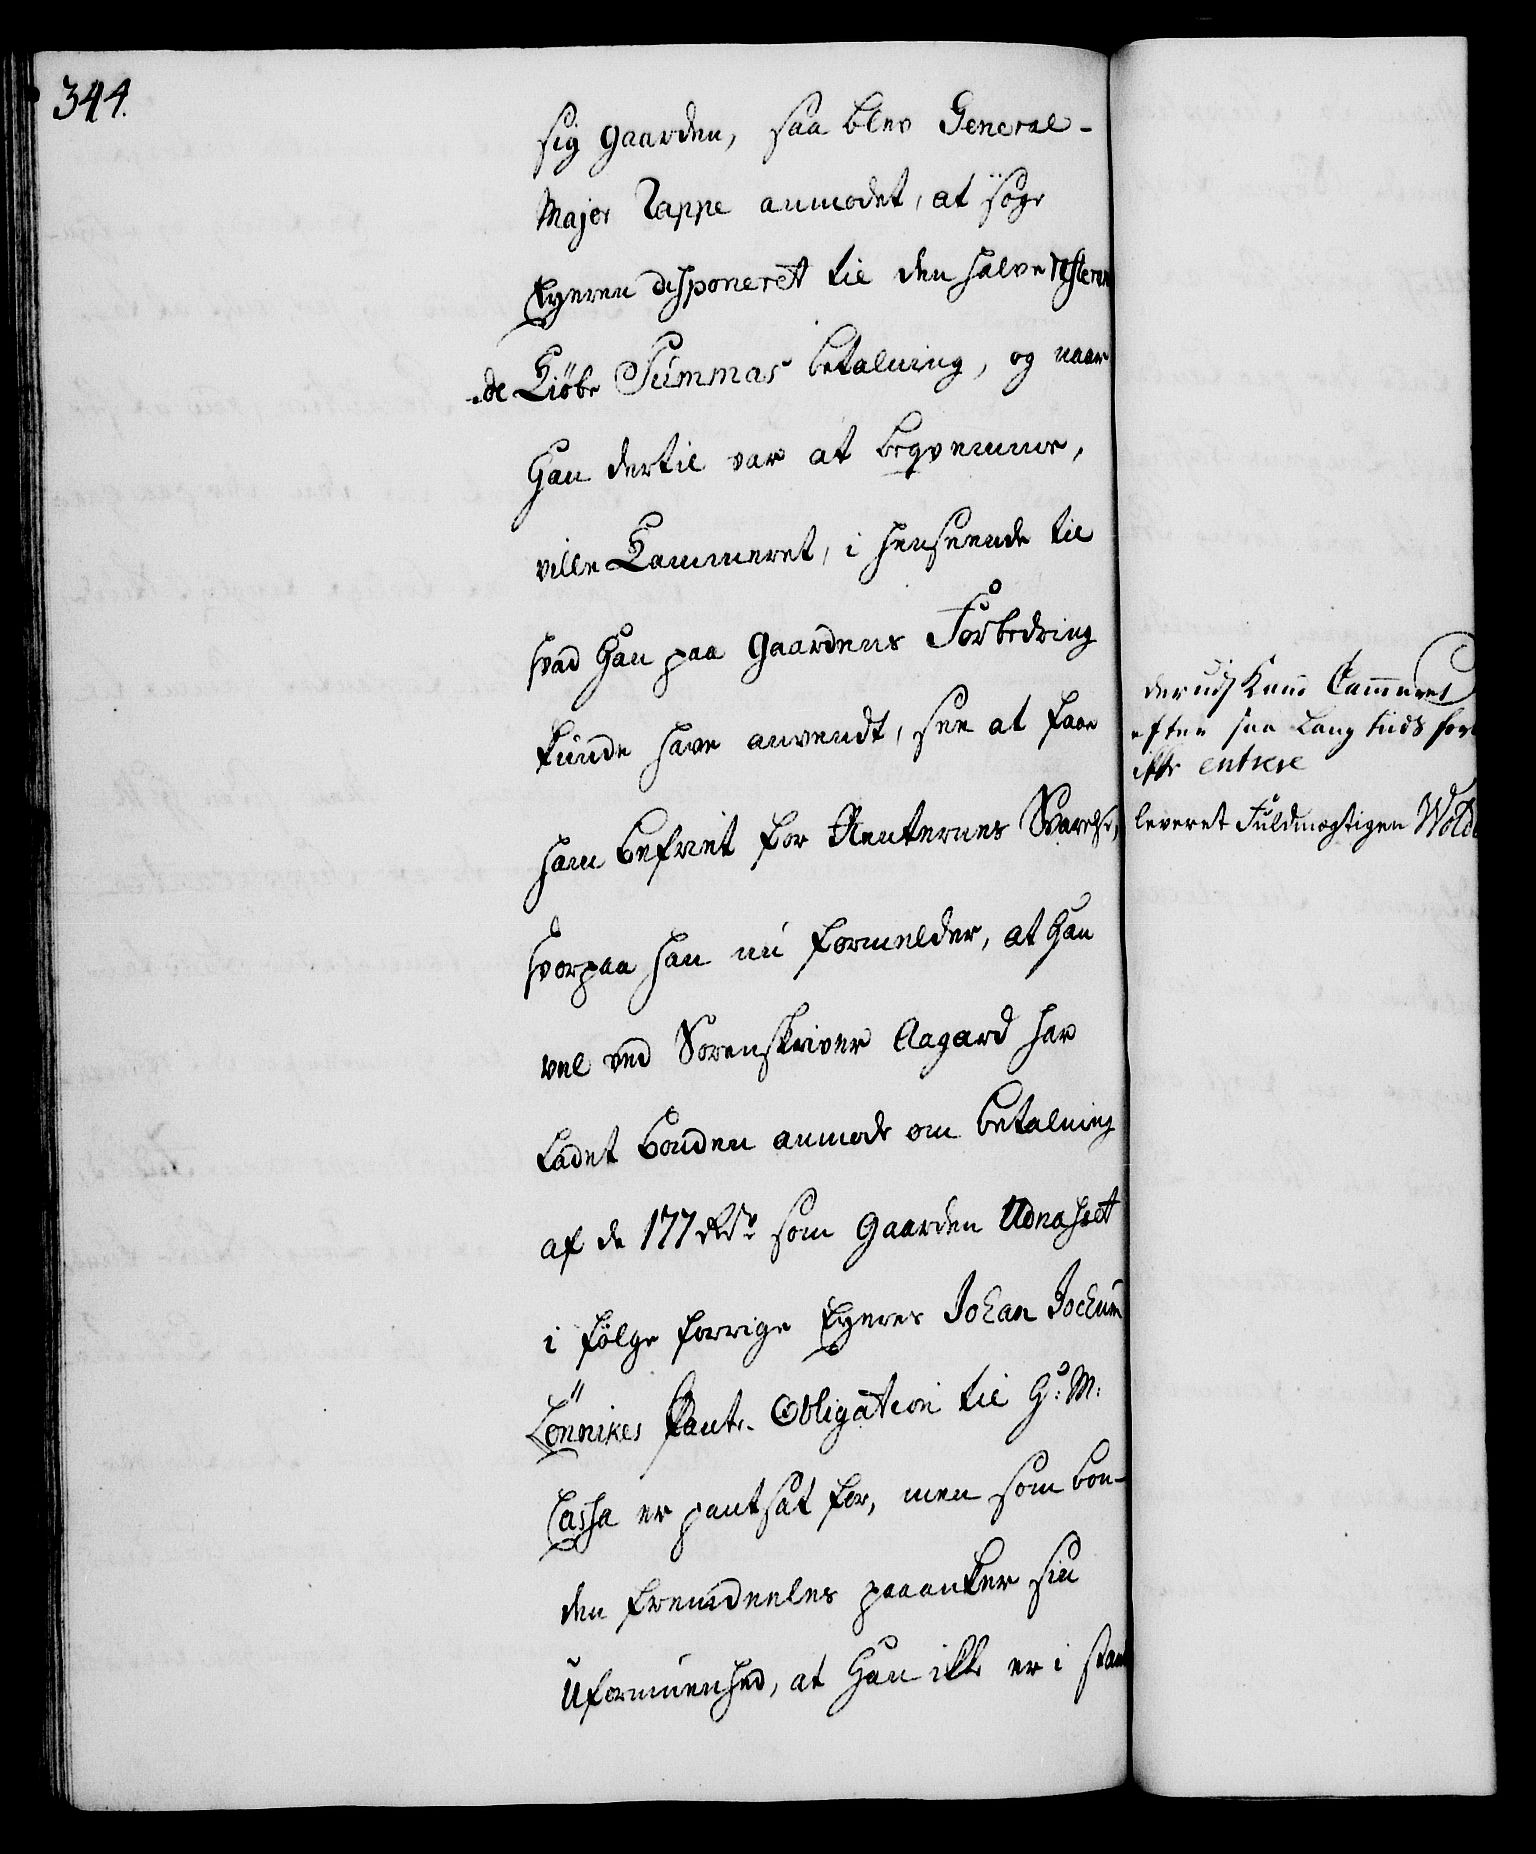 344.
sig Gaarden, saa blev General-
Major Rappe anmodet, at søge
Eyeren disponeret til den halve resteren
de Kiøbe Summas betalning, og naar
Han dertil var at beqvemme,
ville Kammeret, i henseende til
hvad Han paa Gaardens Forbedring
kunde have anvendt, see at faae
ham befriet for Renternes Svarelse,
hvorpaa han nu formelder, at Han
vel ved Sorenskriver Aagard har
ladet bonden anmode om betalning
af de 177 Rdr. som Gaarden Udnaset
i følge forrige Eyeres Johan Jochum
Lönnikes Pant-Obligation til G: M:
Cassa er pantsat for, men som bon-
den fremdeeles paaanker sin
Uformuenhed, at Han ikke er i stan
derudj Kand Cammeret
efter saa lang tids for
ikke entrere
leveret Fuldmægtigen Wold